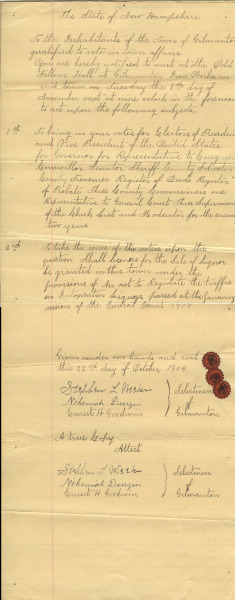 The State of New Hampshire.
To the Inhabitants of the Town of Gilmanton
qualified to vote in town affairs
You are hereby notified to meet at the Odd
Fellows Hall at Gilmanton Iron Works in
said town on Tuesday the 8th day of
November next at nine o'clock in the forenoon
to act upon the following subjects.
1st To bring in your votes for Electors of President
and Vice President of the United States
for Governor for Representative to Congress
Councillor Senator Sheriff County Solicitor
County Treasurer Register of Deeds Register
of Probate Three County Commissioners one
Representative to General Court Three Supervisors
of the Check List and Moderator for the ensuing
two years
2nd To take the sense of the voters upon the
question Shall licenses for the sale of liquor
be granted in this town under the
provisions of An act to Regulate the traffic
in Intoxicating Liquor passed at the January
session of the General Court 1903
Given under our hands and seal
this 22nd day of October 1904.
Selectmen
Nehemiah
of
Ernest H Goodwin
Gilmanton
A true Copy
Attest
Selectmen
Nehemiah
of
Ernest H Goodwin
Gilmanton